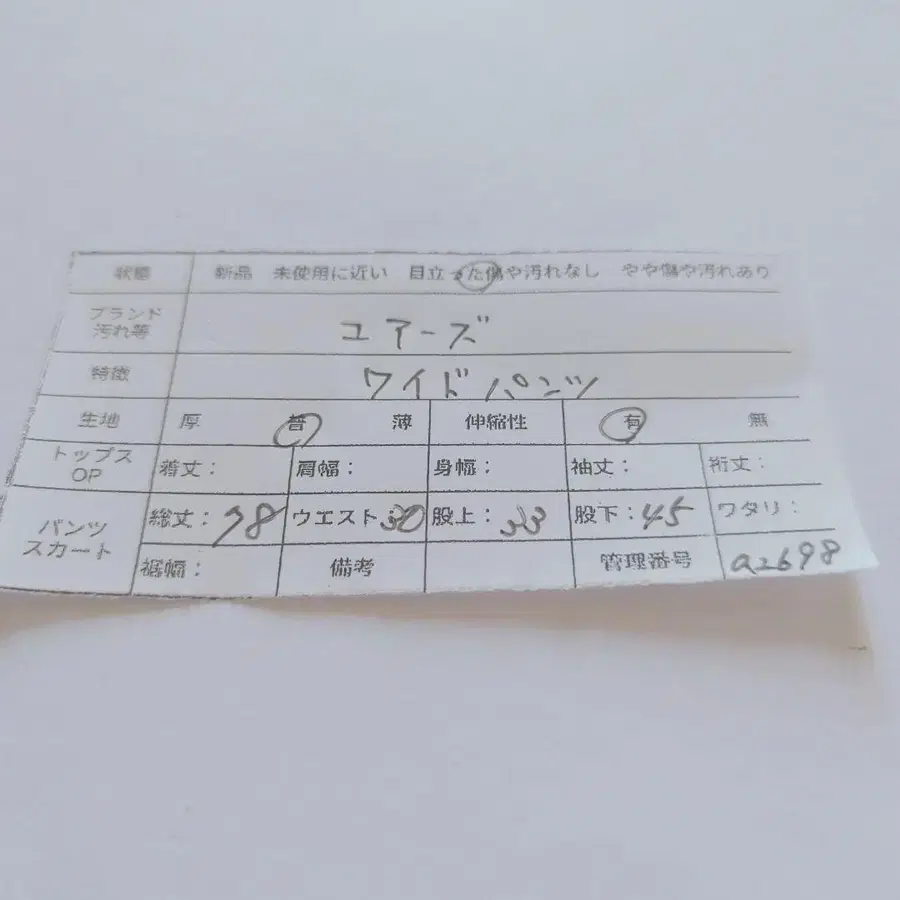 状態 新品 未使用に近い 目立った傷や汚れなし やや傷や汚れあり
ブランド
汚れ等 ユアーズ
特徴 ワイドパンツ
生地 厚 普 薄 伸縮性 有 無
トップス
OP 着丈： 肩幅： 身幅： 袖丈： 裄丈：
パンツ
スカート 総丈：78 ウエスト：30 股上：33 股下：45 ワタリ：
裾幅： 備考 管理番号 a2698